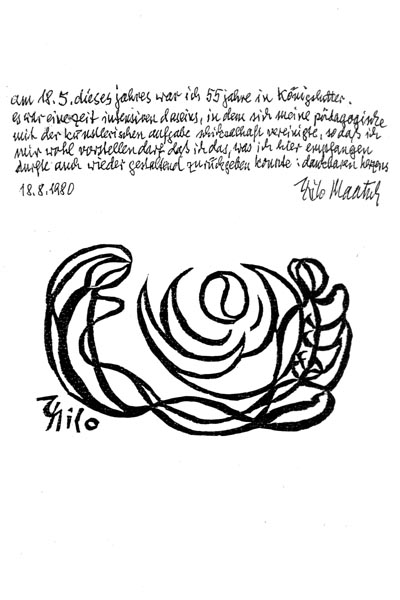 am 18.5. dieses jahres war ich 55 jahre in Königslutter.
es war eine zeit intensiven daseins, in dem sich meine pädagogische
mit der künstlerischen aufgabe schicksalhaft vereinigte, so daß ich
mir wohl vorstellen darf, daß ich das, was ich hier empfangen
durfte auch wieder gestaltend zurückgeben konnte: dankbaren herzens
18.8.1980 Thilo Maatsch
Thilo